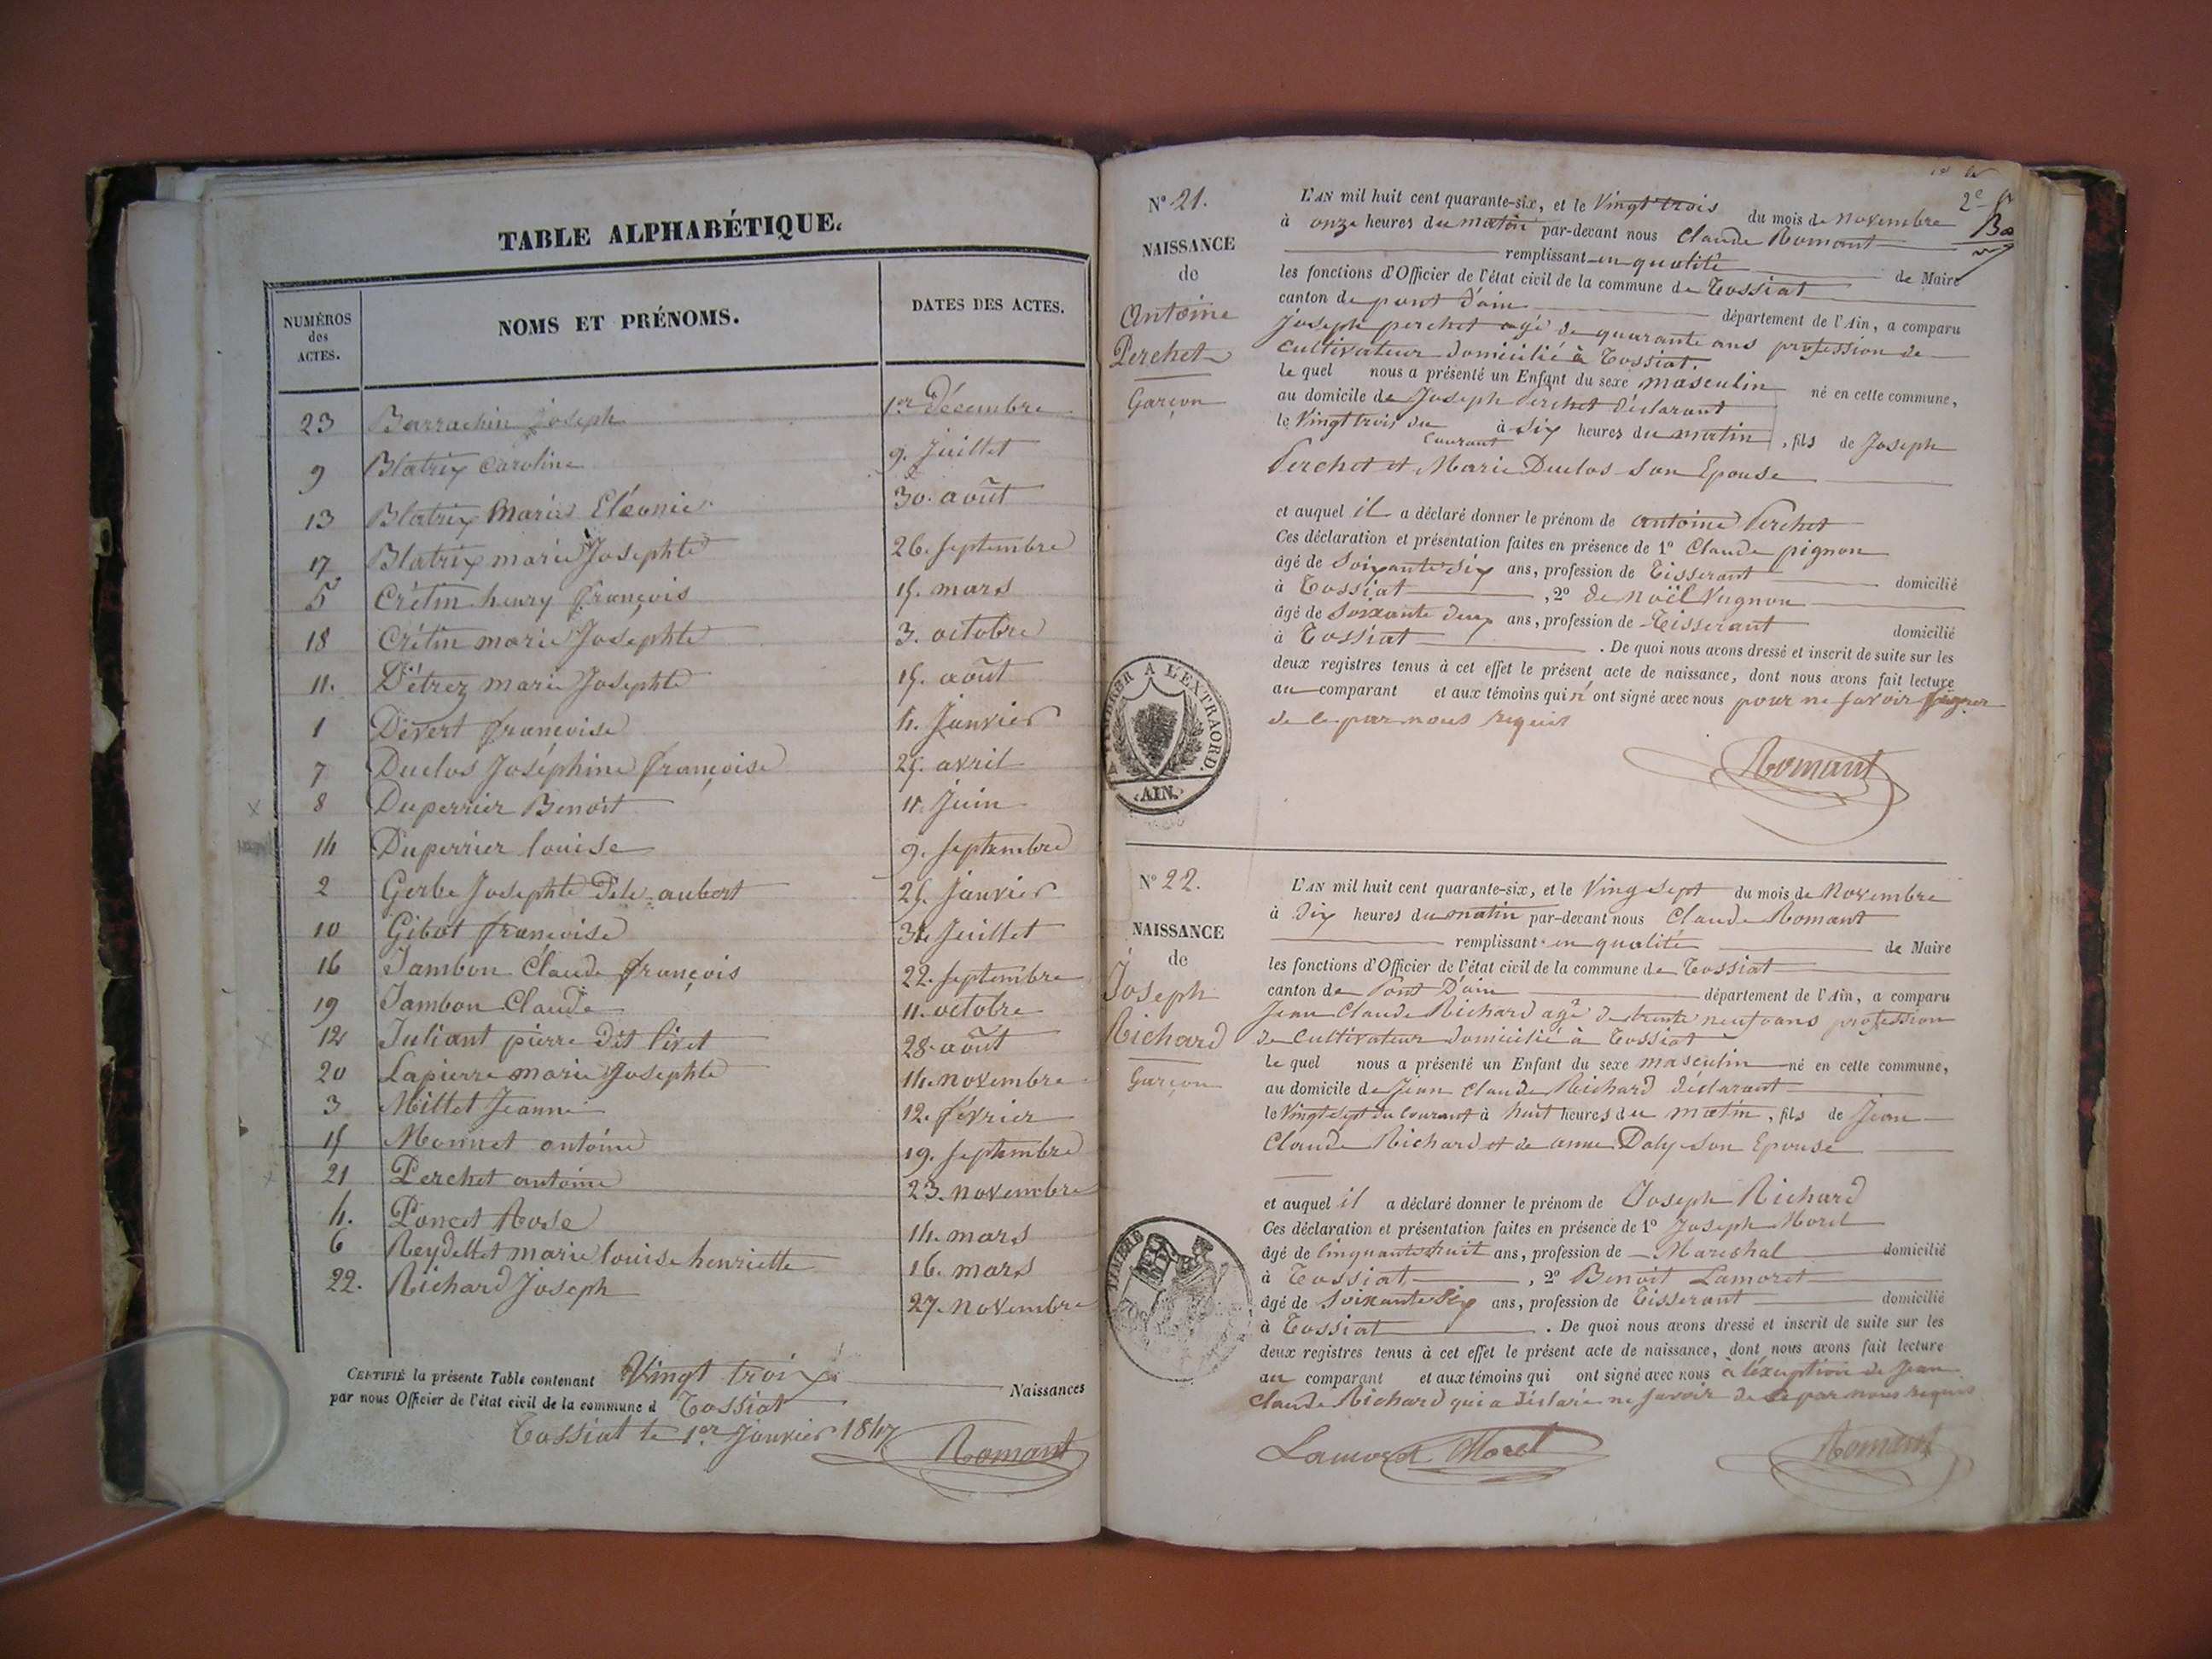 TABLE ALPHABÉTIQUE.
NUMÉROS des ACTES. NOMS ET PRÉNOMS. DATES DES ACTES.
23 Barrachin Joseph 1er Décembre
9 Blatrix Caroline 9. Juillet
13 Blatrix Marie Eléonie 30. août
17 Blatrix marie Josephte 26. Septembre
5 Crétin henry françois 15. mars
18 Crétin marie Josephte 3. octobre
11. Détrez marie Josephte 15. août
1 Devert françoise 4. Janvier
7 Duclos Joséphine françoise 25. avril
8 Duperrier Benoit 11. Juin
14 Duperrier louise 9. Septembre
2 Gerbe Josephte Dele-aubert 25. Janvier
10 Gibot françoise 31. Juillet
16 Jambon Claude françois 22. Septembre
19 Jambon Claude 11. octobre
12 Juliant pierre Dit livet 28. août
20 Lapierre marie Josephte 14. novembre
3 Millet Jeanne 12. février
15 Monnet antoine 19. Septembre
21 Perchet antoine 23. novembre
4. Poncet Rose 14. mars
6 Reydellet marie louise henriette 16. mars
22. Richard Joseph 27. novembre
CERTIFIÉ la présente Table contenant Vingt trois Naissances
par nous Officier de l'état civil de la commune d Tossiat
Tossiat le 1er Janvier 1847
Romant
2e
Nº 21.
NAISSANCE
de
Antoine
Perchet
Garçon
L'AN mil huit cent quarante-six, et le Vingt trois du mois de novembre
à onze heures du matin par-devant nous Claude Romant
remplissant en qualité de Maire
les fonctions d'Officier de l'état civil de la commune de Tossiat
canton de pont d'ain département de l'Ain, a comparu
Joseph perchet agé de quarante ans profession de
Cultivateur domicilié à Tossiat.
le quel nous a présenté un Enfant du sexe masculin né en cette commune,
au domicile de Joseph Perchet déclarant
le Vingt trois du courant à six heures du matin, fils de Joseph
Perchet et Marie Duclos son Epouse
et auquel il a déclaré donner le prénom de antoine Perchet
Ces déclaration et présentation faites en présence de 1º Claude pignon
âgé de Soixante six ans, profession de Tisserant domicilié
à Tossiat, 2º de noël Vugnon
âgé de Soixante deux ans, profession de Tisserant domicilié
à Tossiat. De quoi nous avons dressé et inscrit de suite sur les
deux registres tenus à cet effet le présent acte de naissance, dont nous avons fait lecture
au comparant et aux témoins qui n'ont signé avec nous pour ne savoir signer
de ce par nous requis
Romant
TIMBRE A L'EXTRAORD.
AIN.
Nº 22.
NAISSANCE
de
Joseph
Richard
Garçon
L'AN mil huit cent quarante-six, et le Vingt sept du mois de Novembre
à Dix heures du matin par-devant nous Claude Romant
remplissant en qualité de Maire
les fonctions d'Officier de l'état civil de la commune de Tossiat
canton de Pont D'ain département de l'Ain, a comparu
Jean Claude Richard agé de trente neuf ans profession
de Cultivateur domicilié à Tossiat
le quel nous a présenté un Enfant du sexe masculin né en cette commune,
au domicile de Jean Claude Richard déclarant
le Vingt sept du Courant à huit heures du matin, fils de Jean
Claude Richard et de anne Daly son Epouse
et auquel il a déclaré donner le prénom de Joseph Richard
Ces déclaration et présentation faites en présence de 1º Joseph Morel
âgé de Cinquante huit ans, profession de Marechal domicilié
à Tossiat, 2º Benoit Lamoret
âgé de Soixante Six ans, profession de Tisserant domicilié
à Tossiat. De quoi nous avons dressé et inscrit de suite sur les
deux registres tenus à cet effet le présent acte de naissance, dont nous avons fait lecture
au comparant et aux témoins qui ont signé avec nous à l'éxeption de Jean
Claude Richard qui a déclaré ne savoir de ce par nous requis
Lamoret Morel Romant
TIMBRE